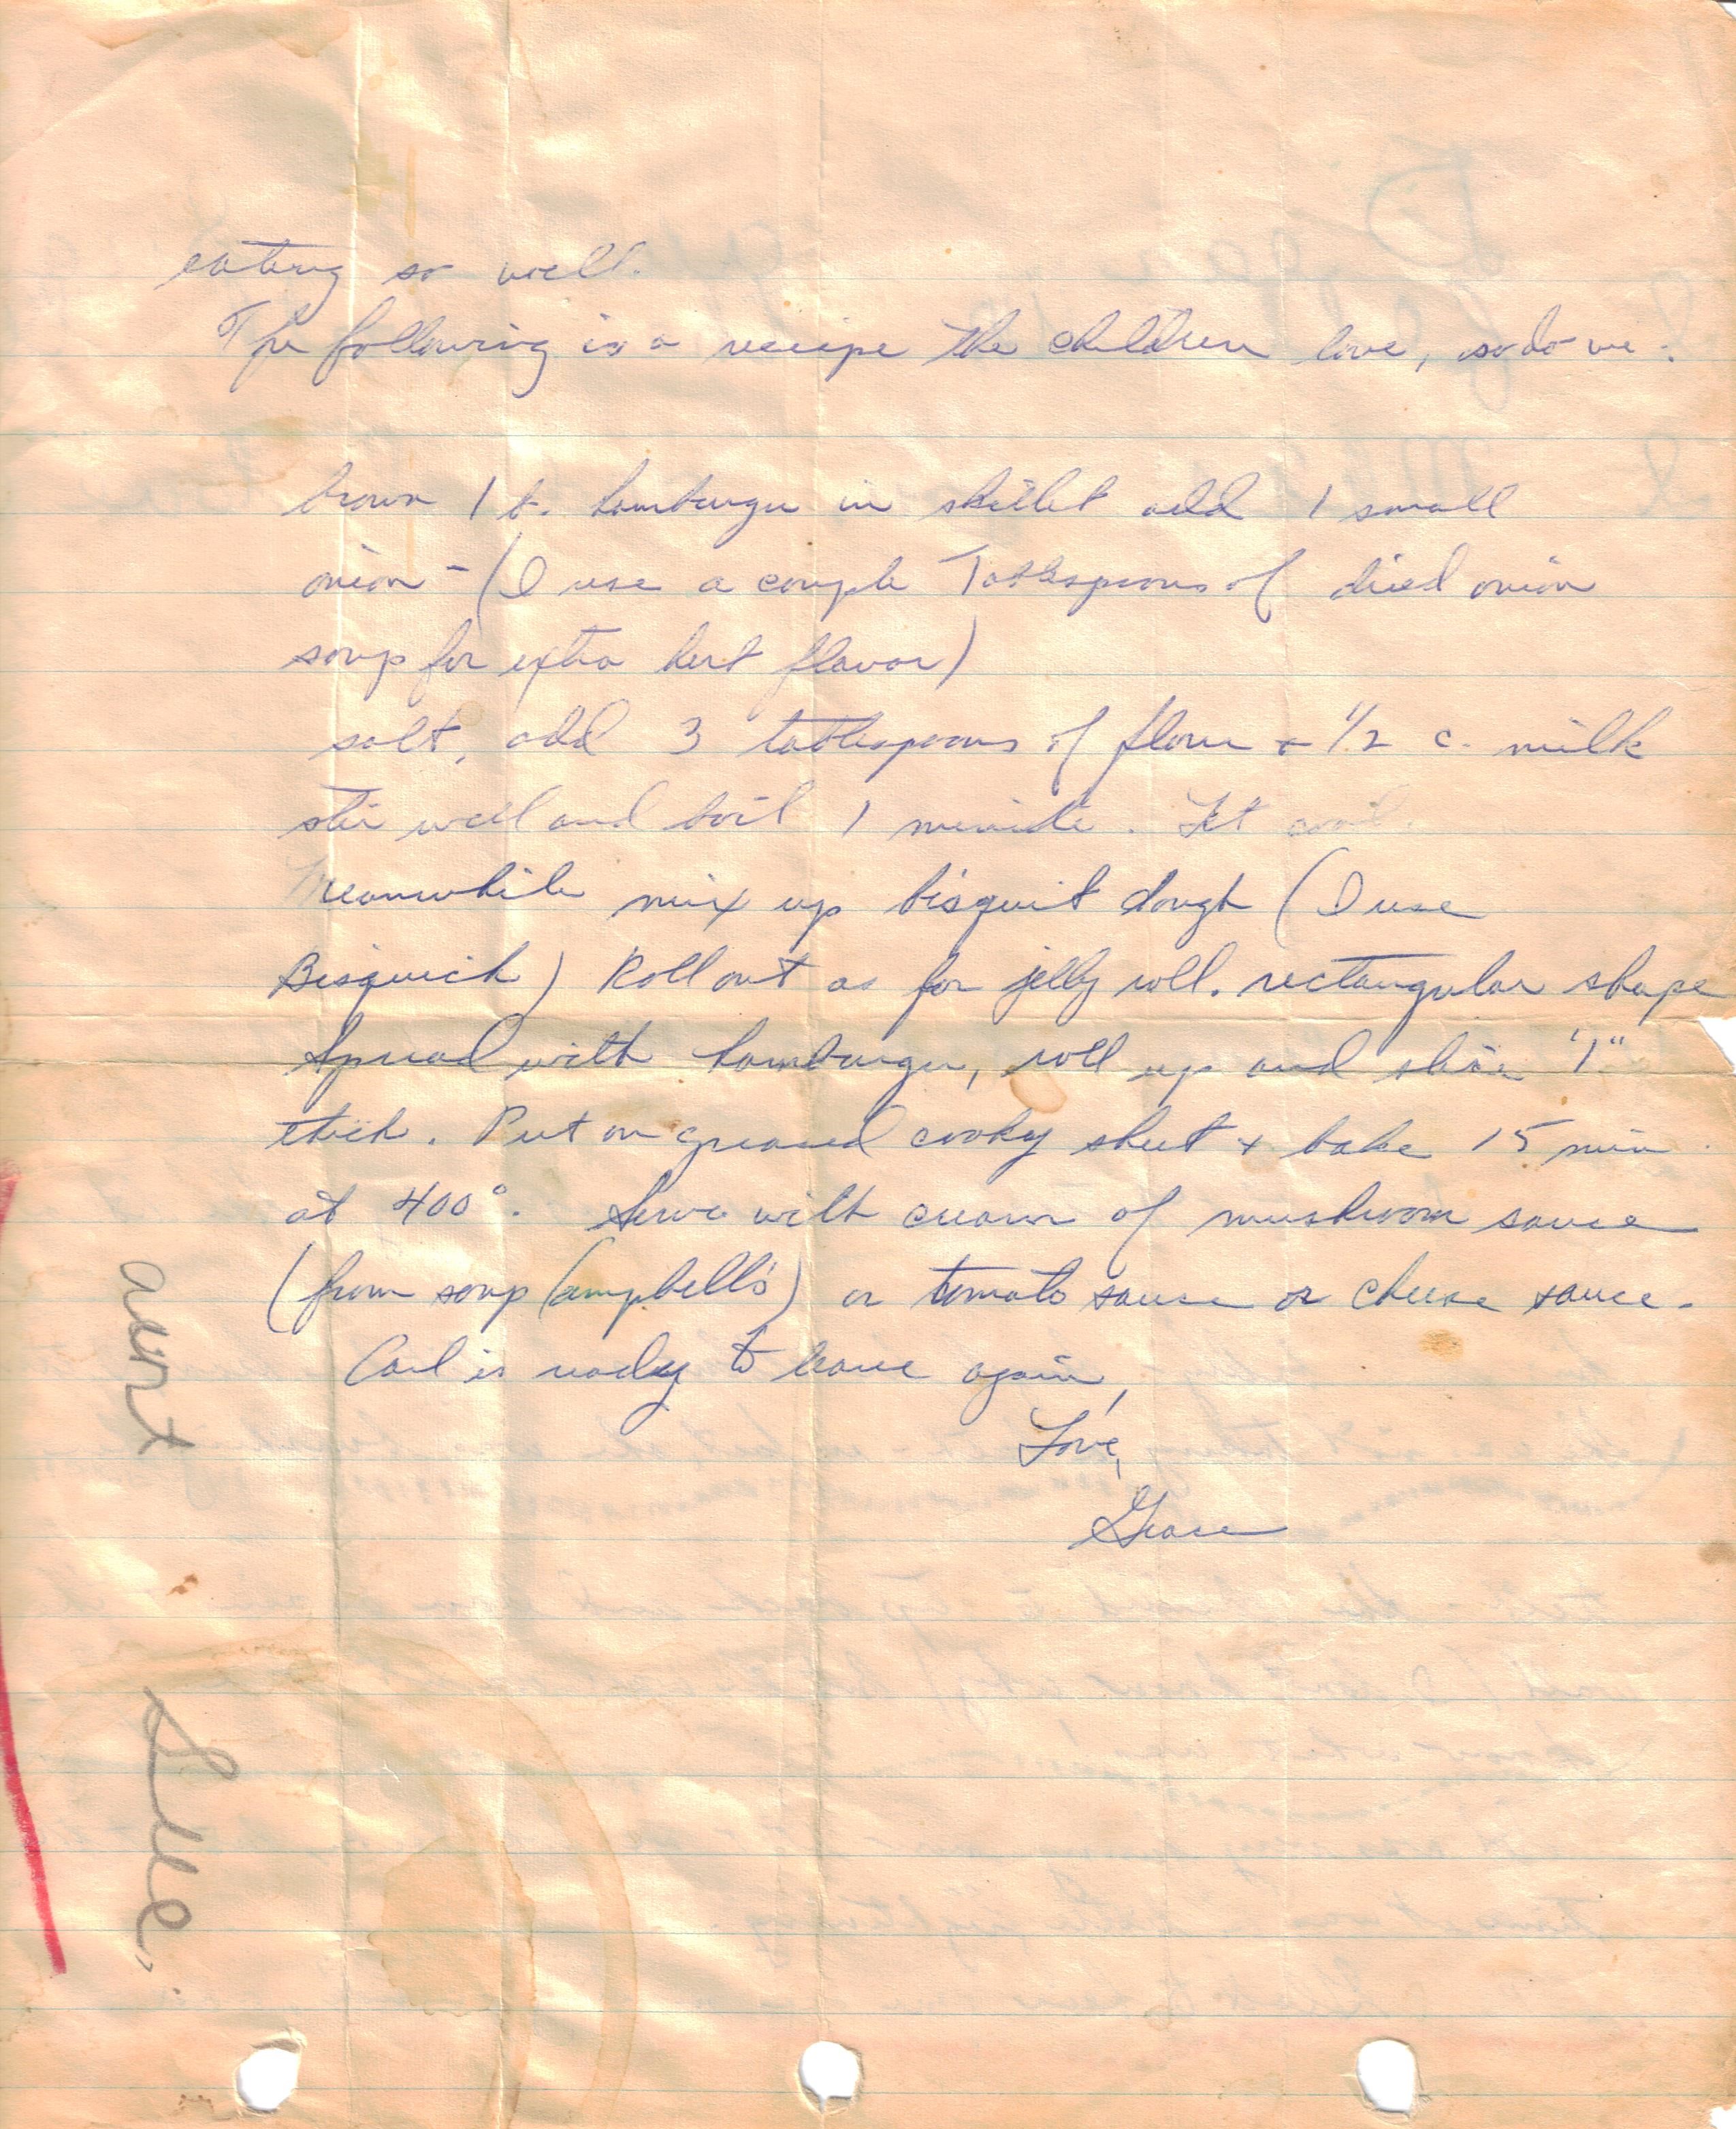 eating so well.
The following is a recipe the children love, so do we.
brown 1 lb. hamburger in skillet add 1 small
onion - (I use a couple Tablespoons of dried onion
soup for extra flavor)
salt, add 3 tablespoons of flour + 1/2 c. milk
stir well and boil 1 minute. Let cool.
Meanwhile mix up bisquit dough (I use
Bisquick) Roll out as for jelly roll. rectangular shape
Spread with hamburger, roll up and slice "1"
thick. Put on greased cooky sheet + bake 15 min
at 400°. Serve with cream of mushroom sauce
(from soup Campbell's) or tomato sauce or cheese sauce.
Carl is ready to leave again,
Love,
Grace
aunt